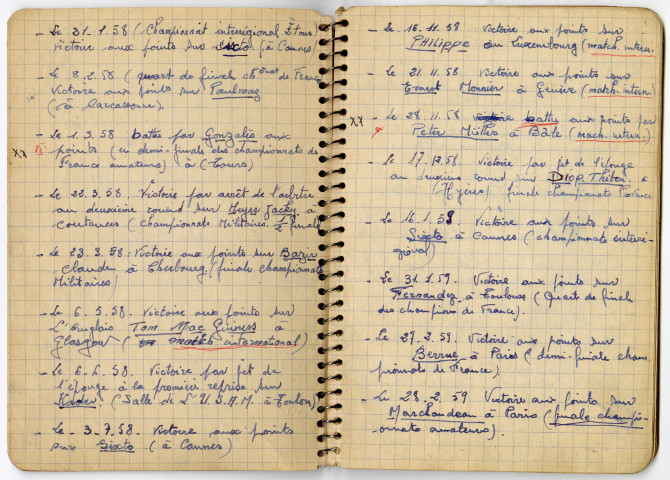 - Le 31.1.58 (Championnat interrégional
victoire aux points sur Sixto (à Cannes)
- Le 8.2.58 (quart de finale ch de France
Victoire aux points sur
(à Carcassonne).
XX - Le 1.3.58 battu par Gonzalès aux
points (en demi-finale des championnats de
France amateurs) à (Tours)
- Le 22.3.58 Victoire par arrêt de l'arbitre
au deuxième round sur Jacky à
Coutances (Championnats Militaires 1/2 finale
- Le 23.3.58 Victoire aux points sur Bazin
Claude à Cherbourg (finale championnats
Militaires)
- Le 6.5.58. Victoire aux points sur
L'Anglais Tom Mac Guiness à
Glasgow ( match international)
- Le 6.6.58. Victoire par jet de
l'éponge à la première reprise sur
Kader. (Salle de L'U S.A.M. à Toulon)
- Le 3.7.58 Victoire aux points
sur Sixto (à Cannes)
- Le 16.11.58 Victoire aux points sur
PHILIPPE du Luxembourg (match. intern.
- Le 21.11.58 Victoire aux points sur
Ernest Monnier à Genève (match. intern.)
XX - Le 28.11.58 battu aux points par
Peter Müller à Bâle (mach. intern.)
- Le 17.12.58 Victoire par jet de l'éponge
au deuxième round sur DIOP. à
(Hyères) finale championnats Provence
- Le 16.1.59 Victoire aux points sur
Sixto à Cannes (championnats interré-
gional)
- Le 31.1.59. Victoire aux points sur
Fernandez à Toulouse (Quart de finale
des champions de France).
- Le 27.2.59. Victoire aux points sur
Berrue à Paris (demi-finale cham
pionnats de France).
- Le 28.2.59 Victoire aux points sur
Marchandeau à Paris (finale champi-
onnats amateurs).